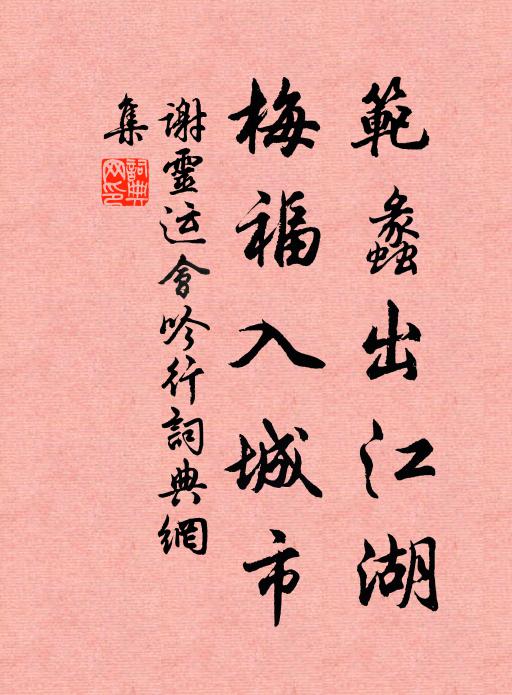 範蠡出江湖
梅福入城市
謝靈运會吟行詞典網
集
詞典网印